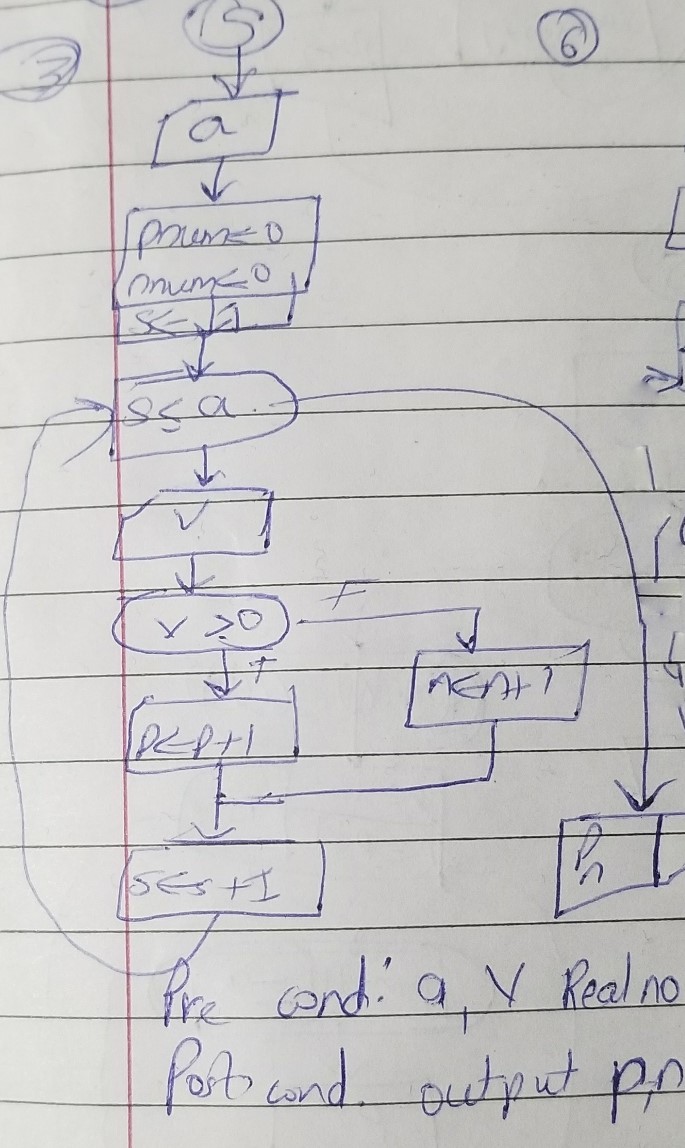 S
3
6
a
pnum←0
nnum←0
s←1
s≤a
v
v≥0
F
T
n←n+1
p←p+1
s←s+1
P,n
Pre cond: a, V Real no
Post cond. output p,n